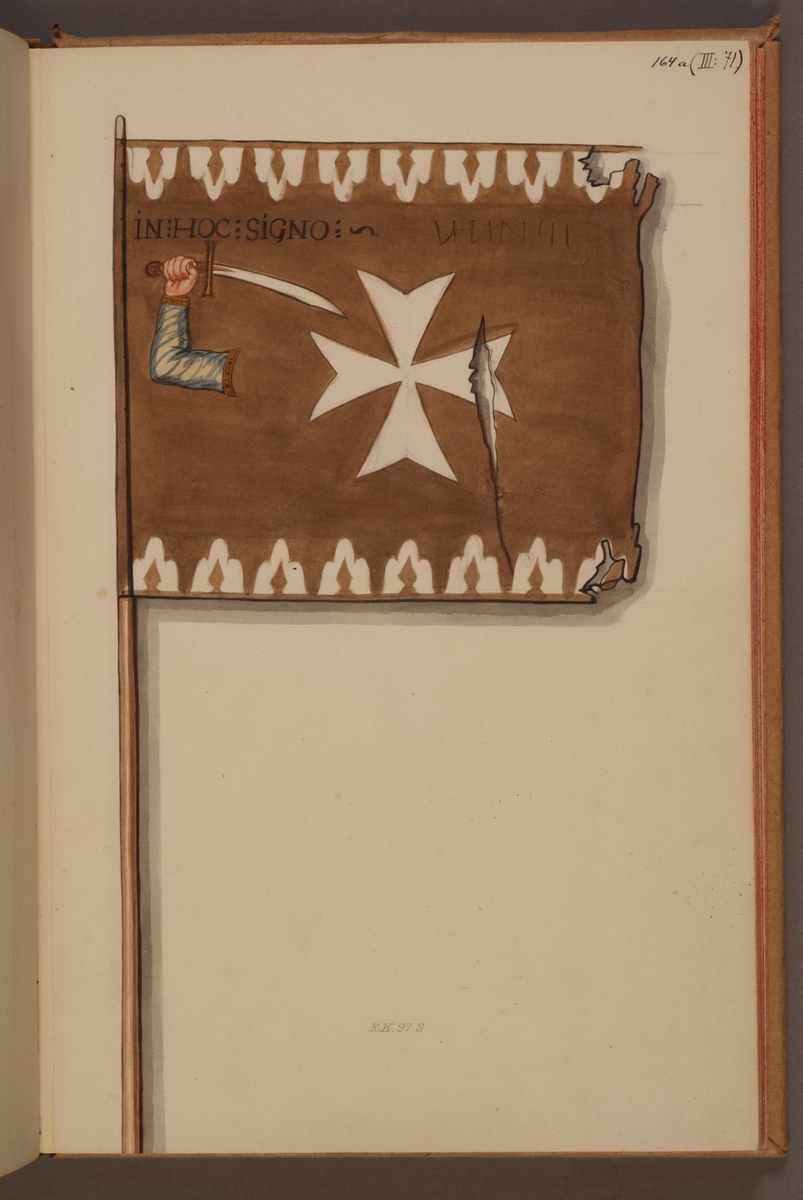 164a (III: 71)
IN:HOC:SIGNO:~
R.K. 97 S